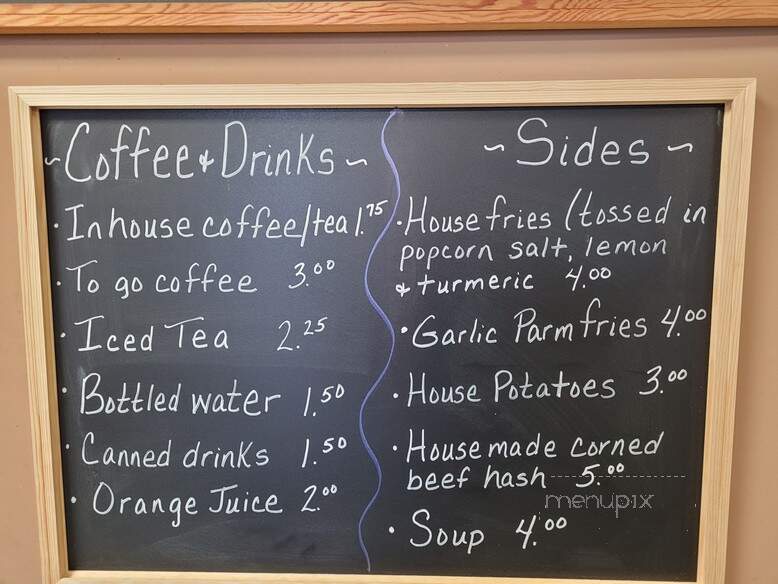 ~Coffee & Drinks~
· Inhouse coffee/tea 1.75
· To go coffee 3.00
· Iced Tea 2.25
· Bottled water 1.50
· Canned drinks 1.50
· Orange Juice 2.00
~ Sides ~
· House fries (tossed in
popcorn salt, lemon
& turmeric 4.00
· Garlic Parm fries 4.00
· House Potatoes 3.00
· House made corned
beef hash 5.00
· Soup 4.00
menupix